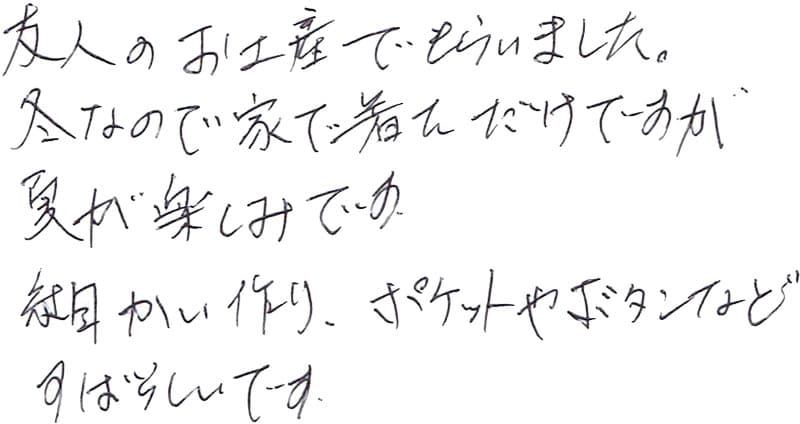 友人のお土産でもらいました。
冬なので家で着ただけですが
夏が楽しみです.
細かい作り、ポケットやボタンなど
すばらしいです.